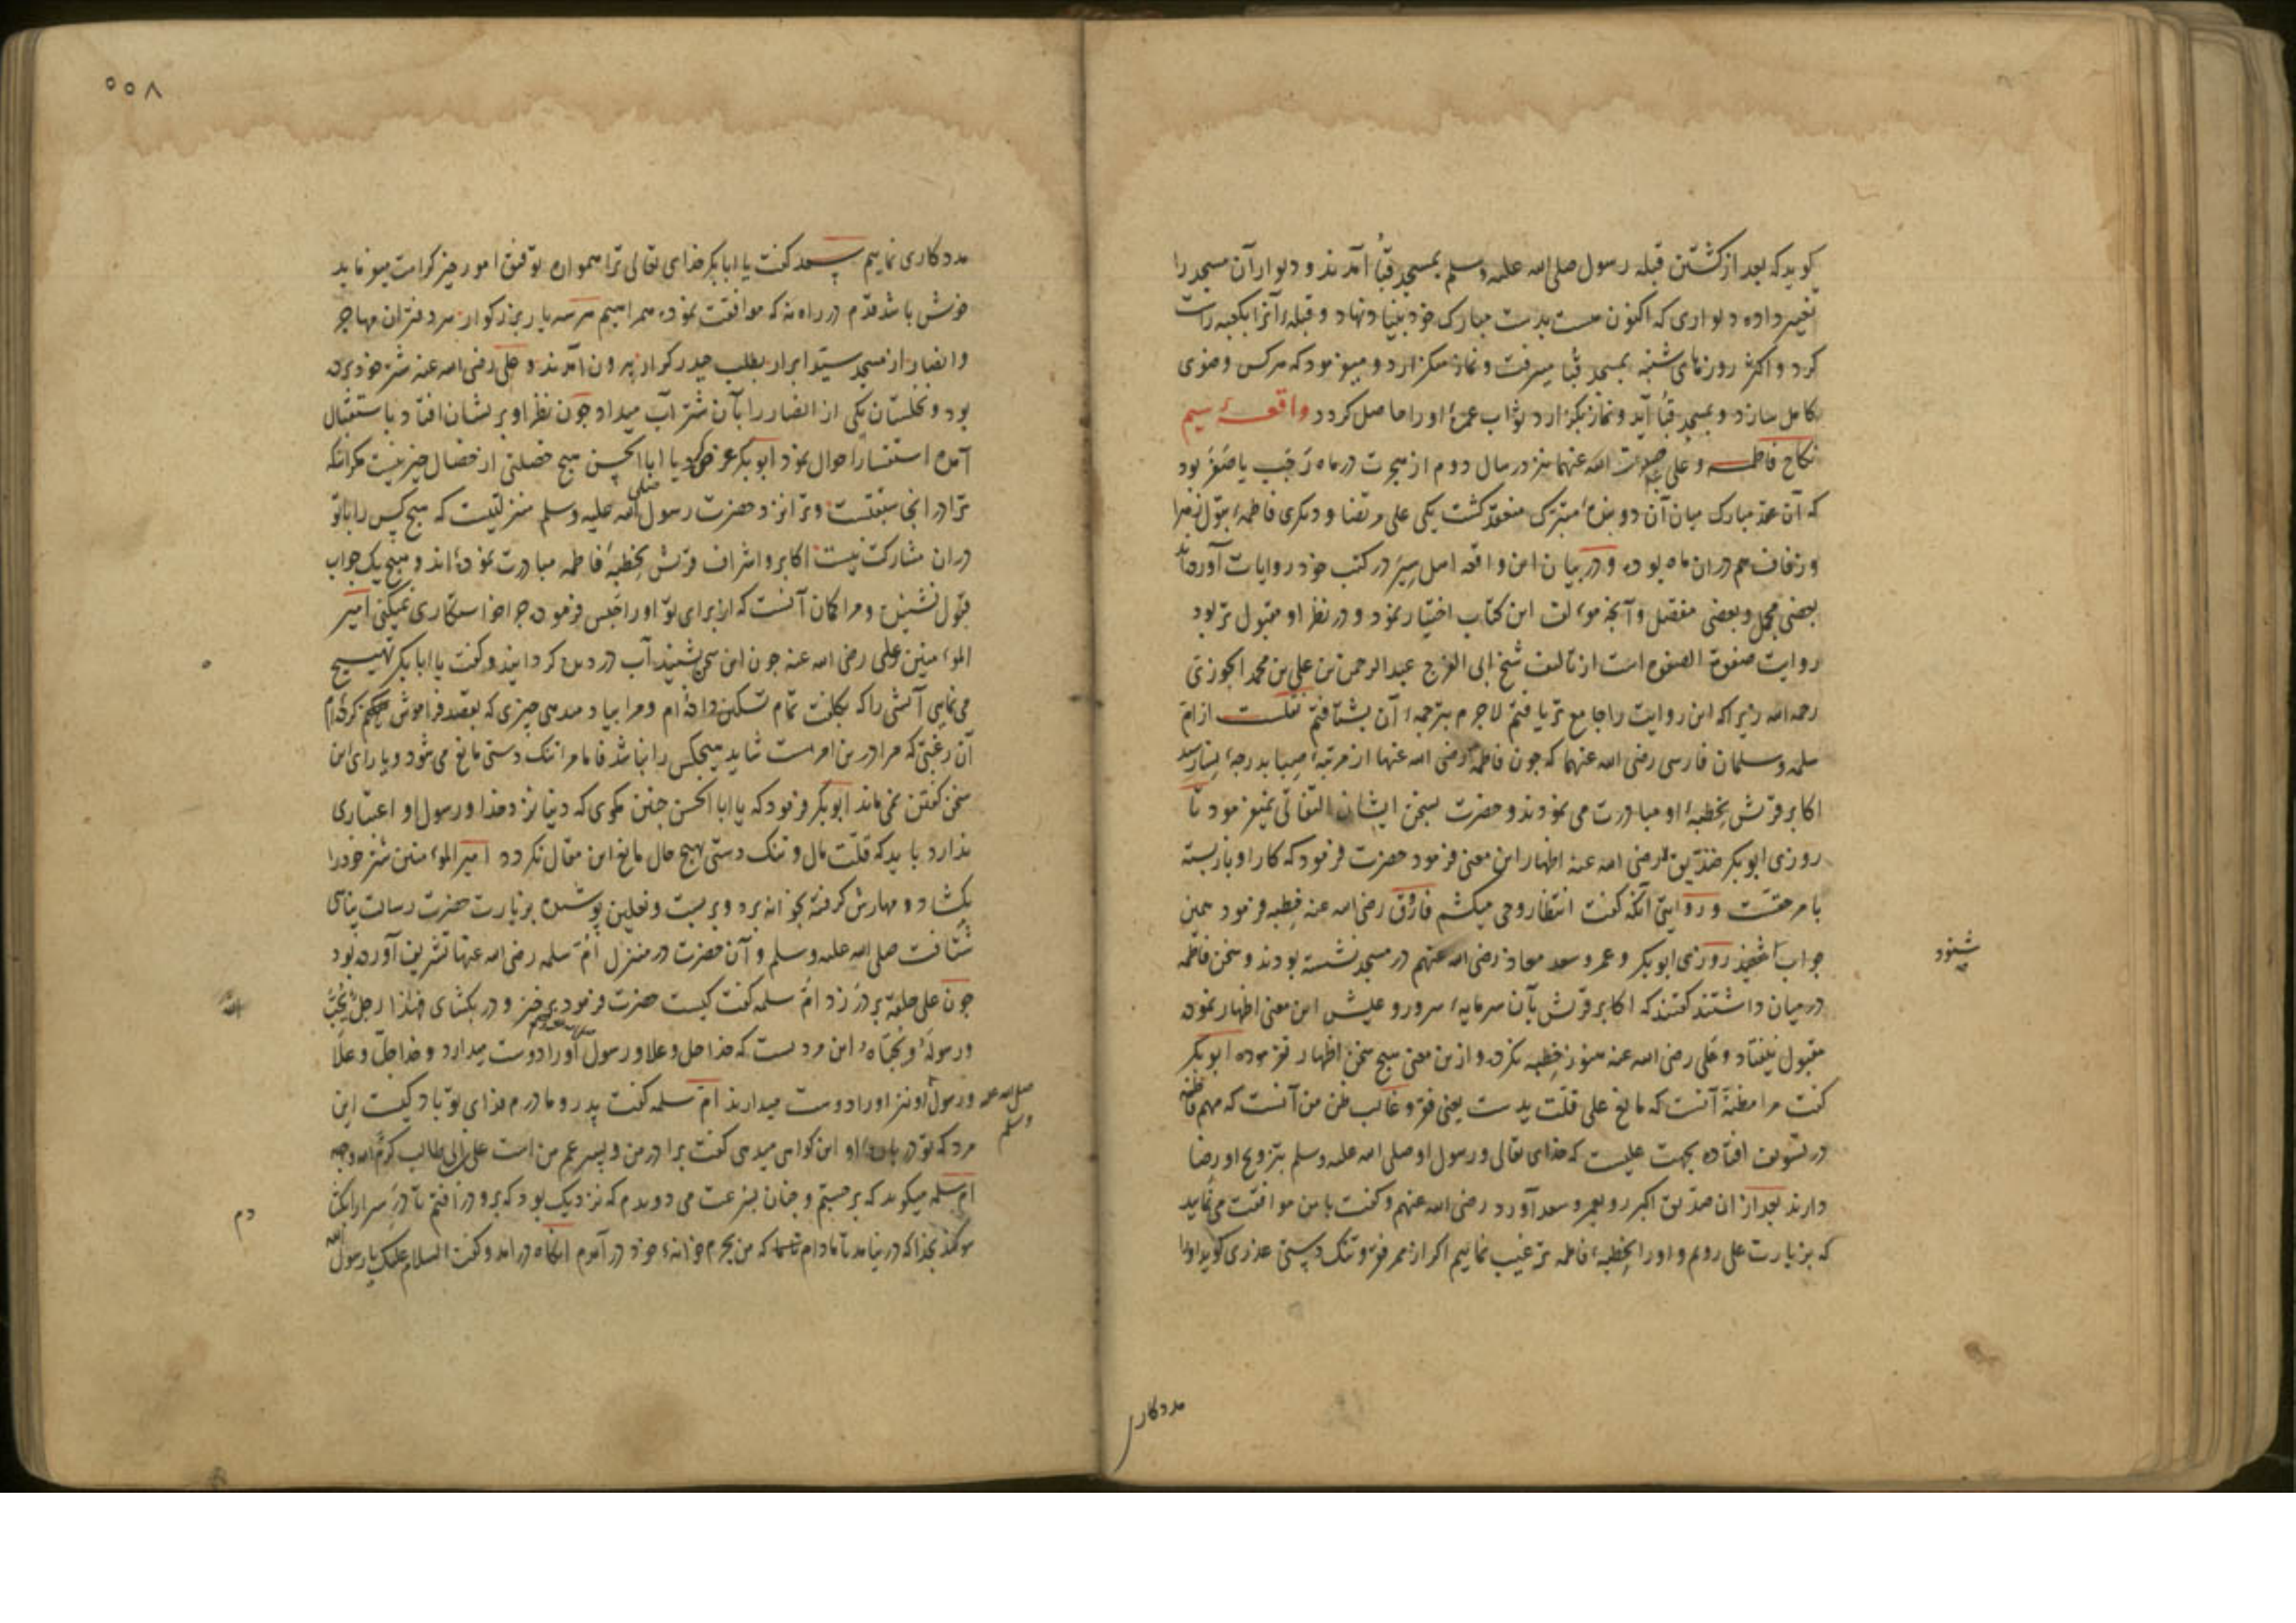 گویدکه بعد از گشتن قبله رسول صلی الله علیه وسلم بمسجد قبا آمدند و دیوار آن مسجد را
تغییر داده دیواری که اکنون هست بدست مبارک خود بنیاد نهاد و قبلهٔ آنرا بکعبه راست
کرد و اکثر روزهای شنبه بمسجد قبا میرفت و نماز میگزارد و میفرمود که هرکس وضوی
کامل سازد و بمسجد قبا آید و نماز بگزارد ثواب عمرهٔ او را حاصل گردد واقعهٔ سیم
نکاح فاطمه و علی الله عنهما نیز در سال دوم از هجرت در ماه رجب یا صفر بود
که آن عقد مبارک میان آن دو متبرک منعقد گشت یکی علی مرتضا و دیگری فاطمهٔ بتول زهرا
و زفاف هم دران ماه بوده و در بیان این واقعه اهل سیر در کتب خود روایات آورده‌اند
بعضی مجمل و بعضی مفصل و آنچه مؤلف این کتاب اختیار نمود و در نظر او مقبول تر بود
روایت صفوة الصفوه است از تالیف شیخ ابی الفرج عبد الرحمن بن علی بن محمد الجوزی
رحمه الله زیرا که این روایت را جامع تر یافتم لاجرم بترجمهٔ آن بشتافتم نقلست از ام
سلمه و سلمان فارسی رضی الله عنهما که چون فاطمه رضی الله عنها از مرتبهٔ صبا بدرجهٔ نسا رسید
اکابر قریش بخطبهٔ او مبادرت می نمودند و حضرت بسخن ایشان التفاتی نمیفرمود تا
روزی ابوبکر صدیق رضی الله عنه اظهار این معنی فرمود حضرت فرمود که کار او باز بسته
بامر حقست و روایتی آنکه گفت انتظار وحی میکشم فاروق رضی الله عنه خطبه فرمود همین
جواب روزی ابوبکر و عمر و سعد معاذ رضی الله عنهم در مسجد نشسته بودند و سخن فاطمه
شنود
در میان داشتند گفتند که اکابر قریش بآن سرمایهٔ سرور و عیش این معنی اظهار نموده
مقبول نیفتاد و علی رضی الله عنه هنوز خطبه نکرده و ازین معنی هیچ سخن اظهار نفرموده ابوبکر
گفت مرا مظنه آنست که مانع علی قلت یدست یعنی فقر و غالب ظن من آنست که مهم فاطمه
در تسویف افتاده بجهت علیست که خدای تعالی و رسول او صلی الله علیه وسلم بتزویج او رضا
دارند بعد ازان صدیق اکبر رو بعمر و سعد آورد رضی الله عنهم و گفت با من موافقت می نمایید
که بزیارت علی رویم و او را بخطبهٔ فاطمه ترغیب نماییم اگر از ممر فقر و تنگ دستی عذری گوید او را
مددکاری
۵۵۸
مددکاری نماییم سعد گفت یا ابابکر خدای تعالی ترا همواره توفیق امور خیر کرامت میفرماید
خوش باشد قدم در راه نه که موافقت نموده همراهیم هر سه یار بزرکوار سردفتران مهاجر
وانصار از مسجد سید ابرار بطلب حیدر کرار بیرون آمدند و علی رضی الله عنه شتر خود برده
بود و نخلستان یکی از انصار را بآن شتر آب میداد چون نظر او بر ایشان افتاد باستقبال
آمده استفسار احوال نمود ابوبکر عرض کرد یا ابا الحسن هیچ خصلتی از خصال خیر نیست مگر انکه
ترا در انجا سبقتست و ترا نزد حضرت رسول صلی الله علیه وسلم منزلتیست که هیچ کس را با تو
دران مشارکت نیست اکابر و اشراف قریش بخطبهٔ فاطمه مبادرت نموده اند و هیچ یک جواب
قبول نشنیده و مرا گمان آنست که از برای تو او را حبس فرموده چرا خواستگاری نمیکنی امیر
المؤمنین علی رضی الله عنه چون این سخن بشنید آب در دیده گردانید و گفت یا ابابکر تهییج
می نمایی آتشی را که بکلفت تمام تسکین داده‌ام و مرا بیاد میدهی چیزی که بقصد فراموش کرده‌ام
آن رغبتی که مرا درین امرست شاید هیچکس را نباشد فاما مرا تنگ دستی مانع می شود و یارای این
سخن گفتن نمی ماند ابوبکر فرمود که یا ابا الحسن چنین مگوی که دنیا نزد خدا و رسول او اعتباری
ندارد باید که قلت مال و تنگ دستی بهیچ حال مانع این مقال نگردد امیر المؤمنین شتر خود را
بگشاد و مهارش گرفته بخانه برد و ببست و نعلین پوشیده بزیارت حضرت رسالت پناهی
شتافت صلی الله علیه وسلم و آن حضرت در منزل ام سلمه رضی الله عنها تشریف آورده بود
چون علی حلقه بر در زد ام سلمه گفت کیست حضرت فرمود برخیز و در بگشای فهذا رجل یحب
ورسوله ویحباه این مردیست که خدا جل وعلا و رسول او را دوست میدارد و خدا جل وعلا
و رسول او نیز او را دوست میدارند ام سلمه گفت پدر و مادرم فدای تو باد کیست این
صلی الله علیه وسلم
مرد که تو در بارهٔ او این گواهی میدهی گفت برادر من و پسر عم من است علی بن ابی طالب کرم الله وجهه
ام سلمه میگوید که برجستم و چنان بسرعت می دویدم که نزدیک بود که برو در افتم تا در سرا را بگشادم
سوگند بخدا که در نیامد تا مادام که من بحرم خانهٔ خود در آمدم انگاه در امد و گفت السلام علیک یا رسول الله